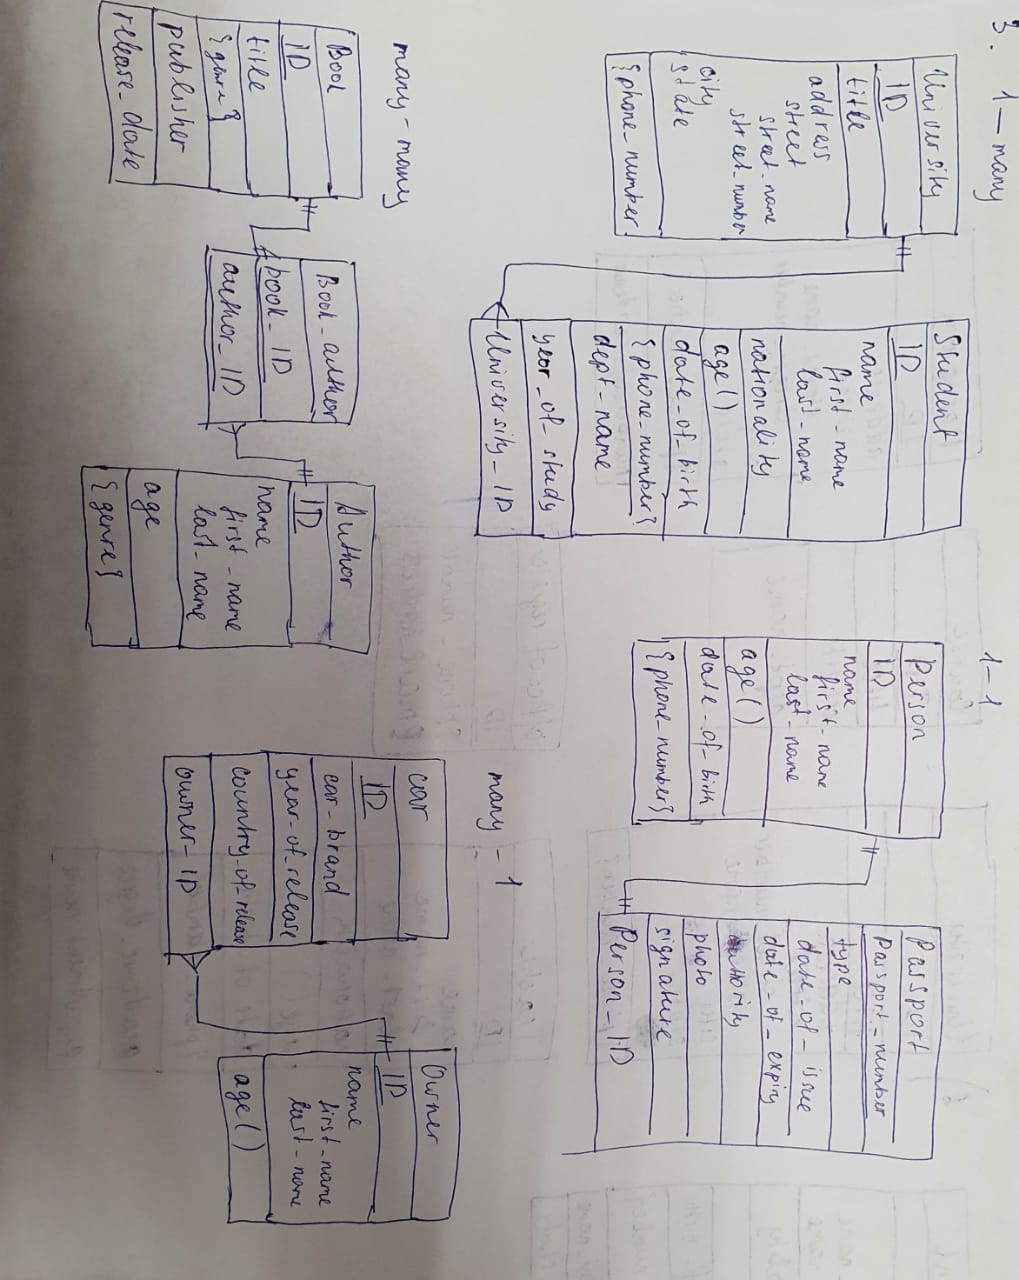 3. 1 – many
University
ID
title
address
street
street_name
street_number
city
state
{phone_number}
Student
ID
name
first_name
last_name
nationality
age()
date_of_birth
{phone_number}
dept_name
year_of_study
University_ID
1–1
Person
ID
name
first_name
last_name
age()
date_of_birth
{phone_number}
Passport
Passport_number
type
date_of_issue
date_of_expiry
authority
photo
signature
Person_ID
many-many
Book
ID
title
{genre}
publisher
release_date
Book_author
book_ID
author_ID
Author
ID
name
first_name
last_name
age
{genre}
many – 1
car
ID
car_brand
year_of_release
country_of_release
owner_ID
Owner
ID
name
first_name
last_name
age()